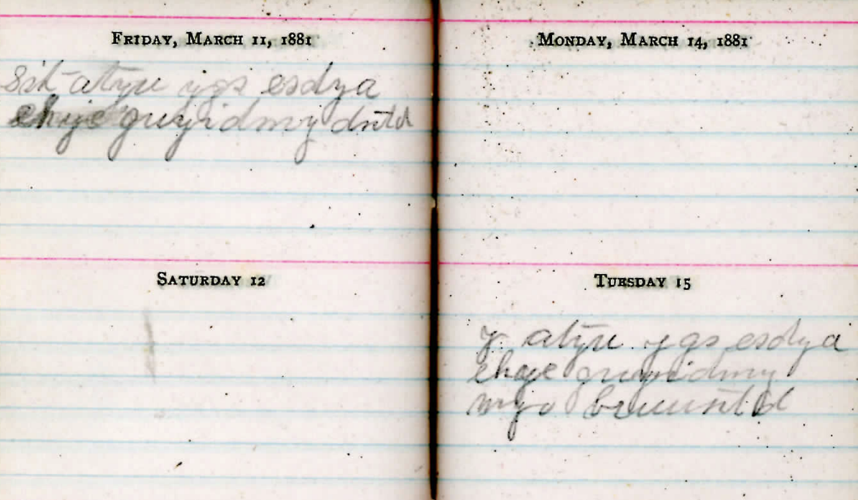 FRIDAY, MARCH 11, 1881
sit atyu ygs esdya
ehye guyidmy dntd
SATURDAY 12
MONDAY, MARCH 14, 1881
TUESDAY 15
y atyu ygs esdya
ehye guyidmy
myo